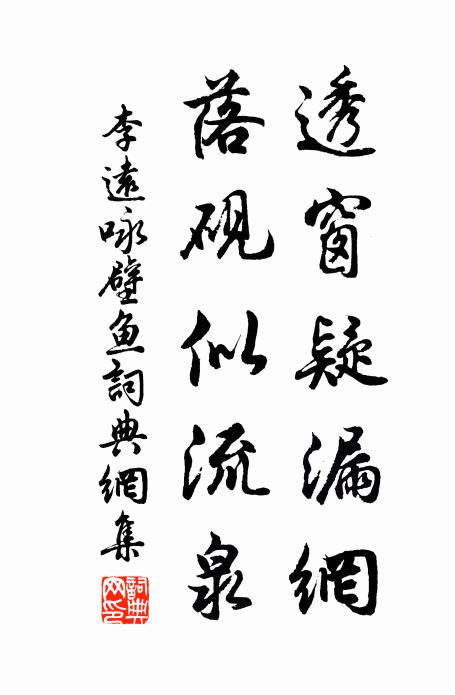 透窗疑漏網
落硯似流泉
李遠咏壁魚詞典網集
詞典網印